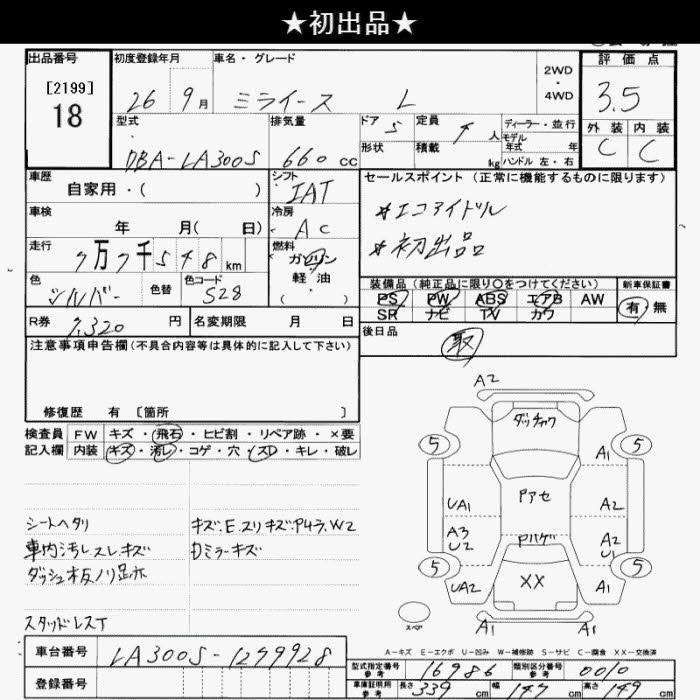 ★初出品★
出品番号
[2199]
18
初度登録年月
26 9月
車名・グレード
ミライース L
2WD
・
4WD
評価点
3.5
外装 内装
C C
型式
DBA-LA300S
排気量
660 cc
ドア 5
定員 4 人
形状
積載 kg
ディーラー・並行
モデル
年式 年
ハンドル 左・右
車歴
自家用・( )
シフト
IAT
車検
年 月( 日)
冷房
AC
走行
7万7千548km
燃料
ガソリン
軽・油
( )
色
シルバー
色替
色コード
S28
R券
7,320 円
名変期限 月 日
セールスポイント (正常に機能するものに限ります)
*エコアイドル
*初出品
装備品(純正品に限り○をつけてください)
PS PW ABS エアB AW
SR ナビ TV カワ
新車保証書
有 無
後日品
取
注意事項申告欄(不具合内容等は具体的に記入して下さい)
修復歴 有 〔箇所 〕
検査員
記入欄
FW キズ・飛石・ヒビ割・リペア跡・×要
内装 キズ・汚レ・コゲ・穴・スレ・キレ・破レ
シートヘタリ
車内汚レスレキズ
ダッシュ板ノリ跡
スタッドレスT
キズ、E、スリキズ、P4ラ、W2
Dミラーキズ
A2
ダッチャク
5 5
A1
Pアセ
UA1 A2
A3
U2
Pハゲ
A2
U1
5 5
XX
UA2 A1
スペア
A1 A1
A-キズ E-エクボ U-凹み W-補修跡 S-サビ C-腐食 XX-交換済
車台番号
LA300S-1279928
登録番号
型式指定番号
参考
16986
類別区分番号
参考
0010
車庫証明用
参考
長さ 339 cm 幅 147 cm 高さ 149 cm